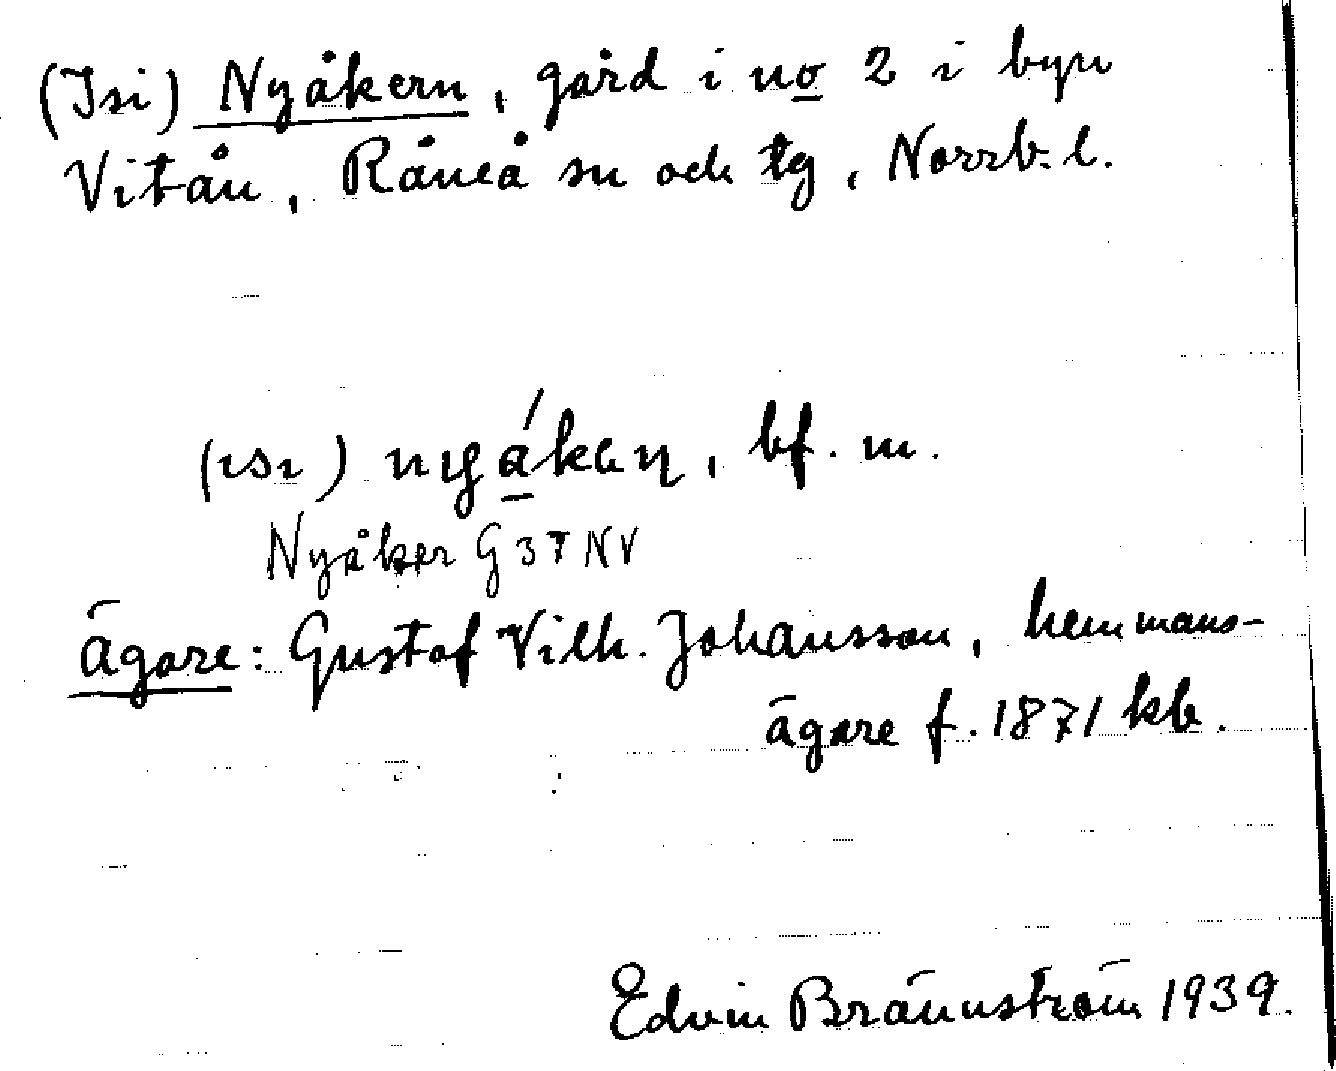 (Isi) Nyåkern, gård i no 2 i byn
Vitån, Råneå sn och tg, Norrb. l.
(ısı) nyákɐn, bf. m.
Nyåker G 37 NV
Ägare: Gustaf Vilh. Johansson, hemmans-
ägare f. 1871 kb.
Edvin Brännström 1939.